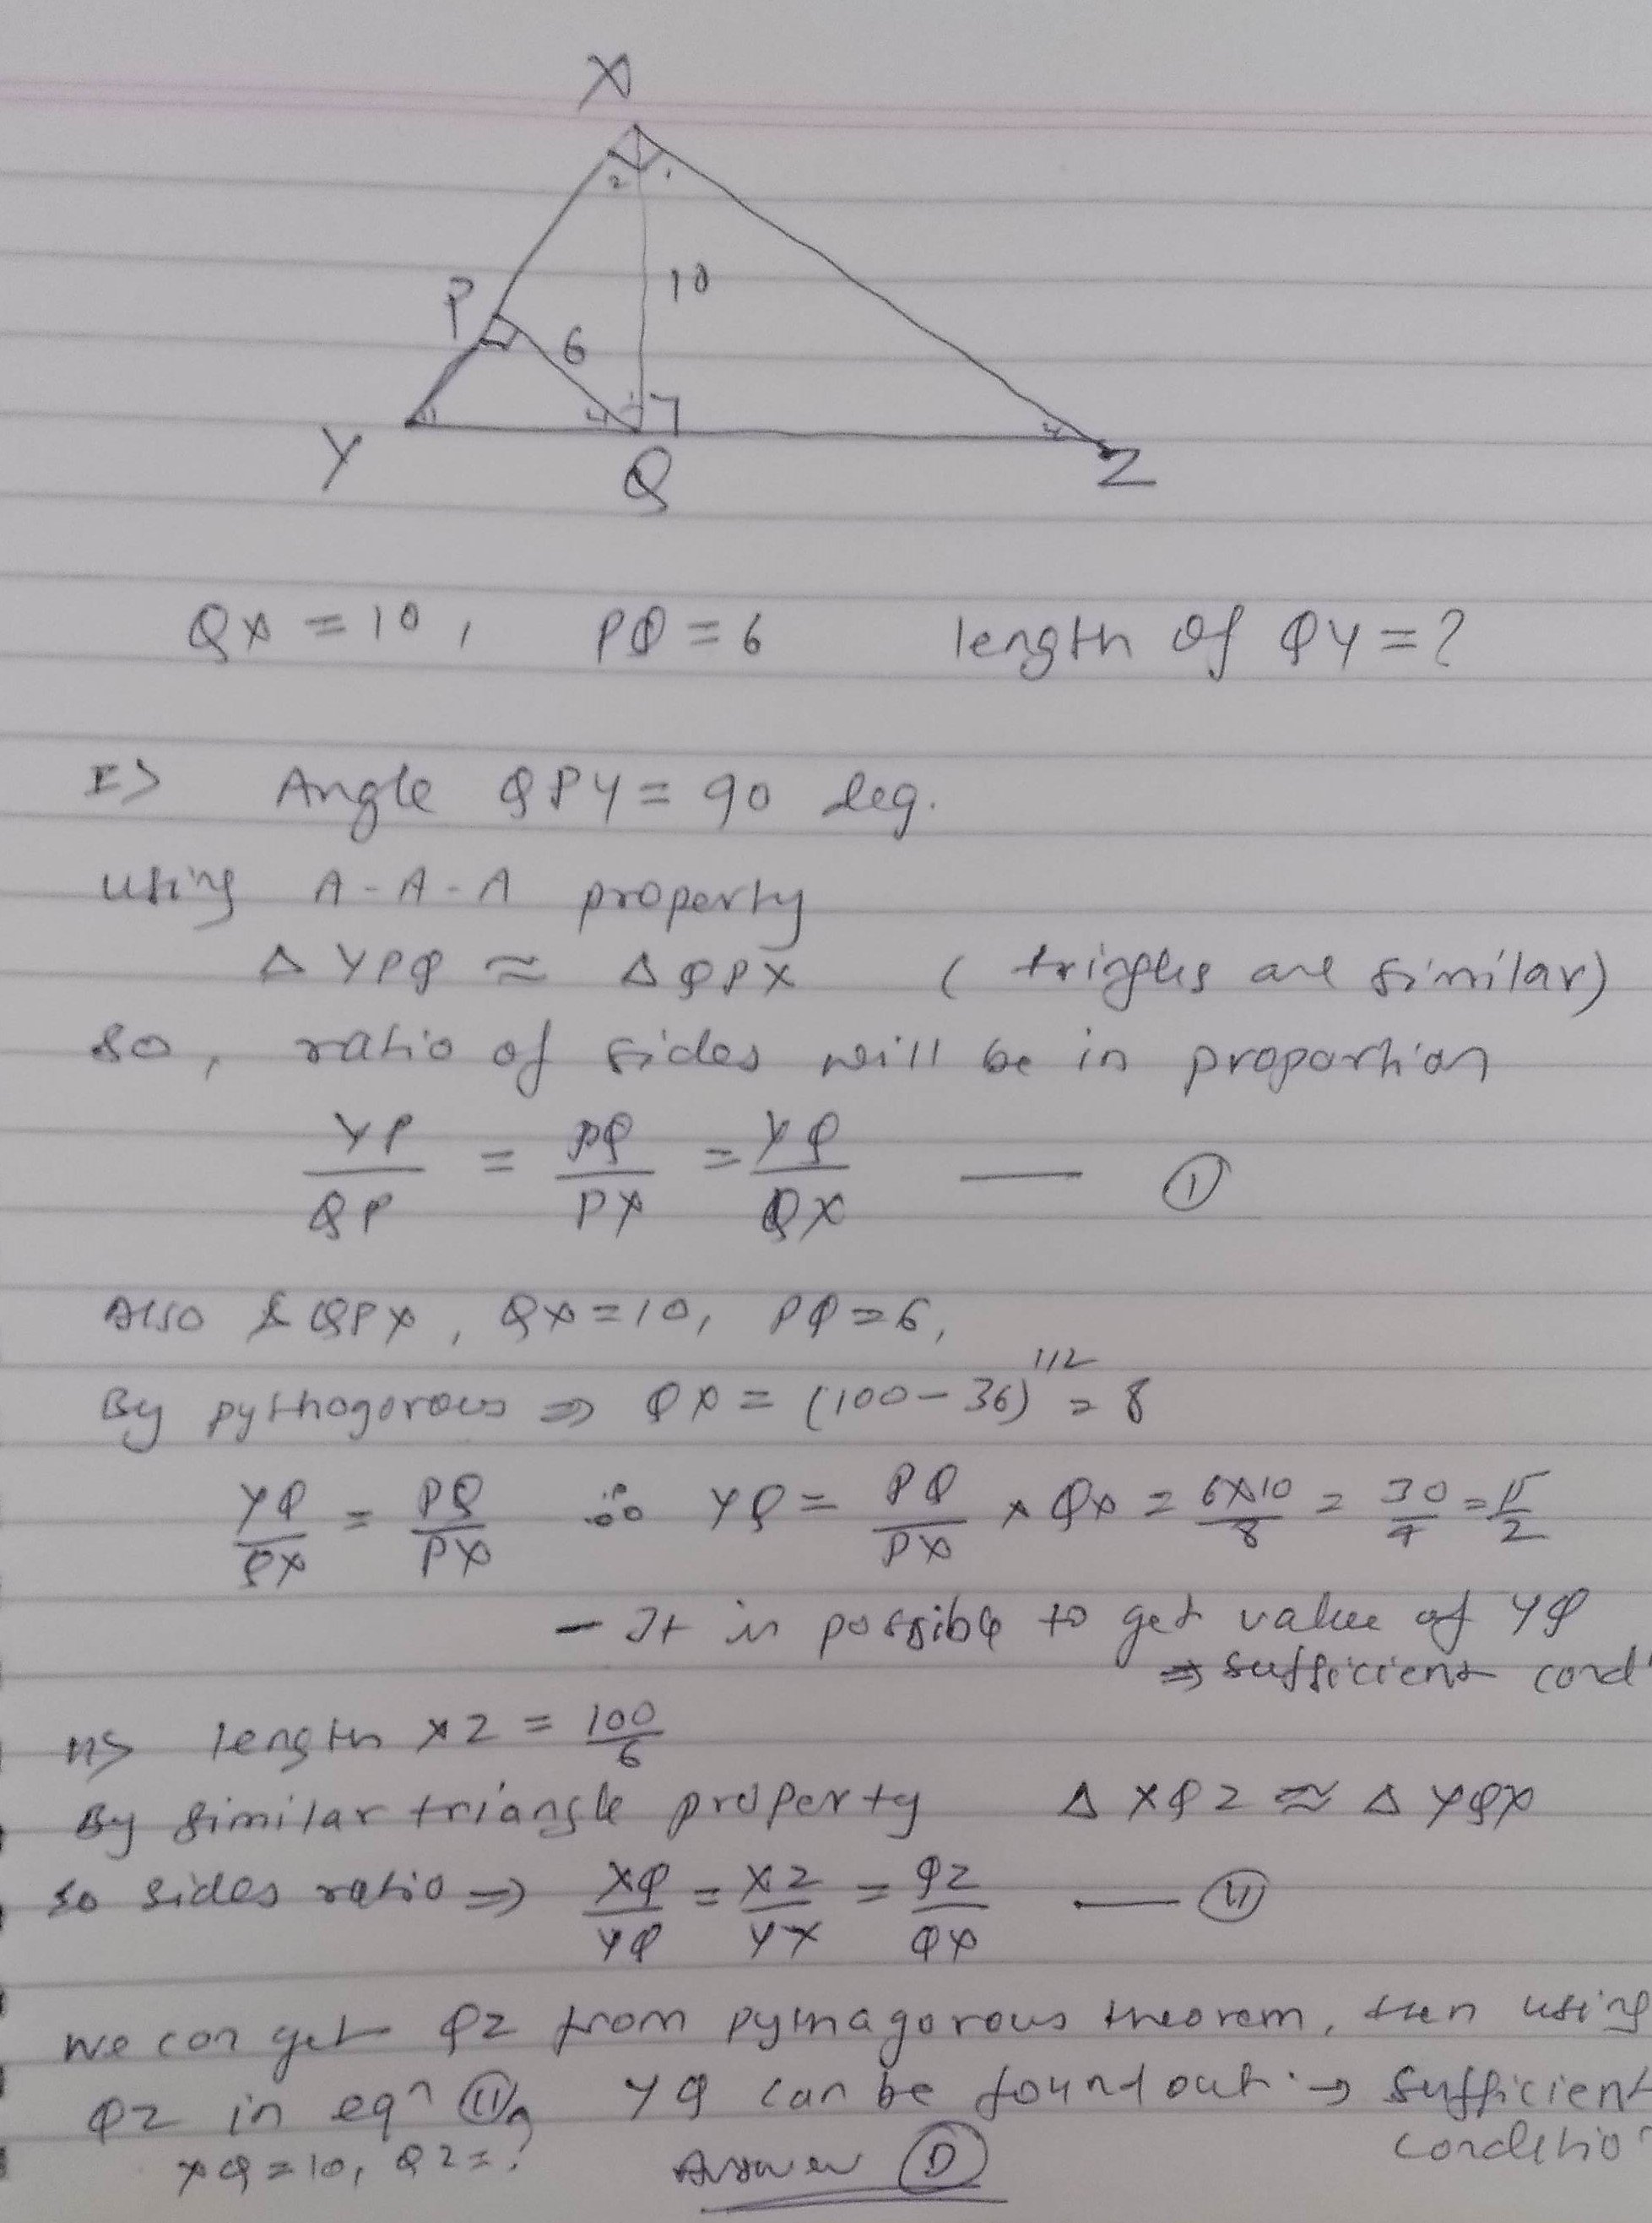 X
2 1
P
10
6
Y
4
Q
4
Z
QX = 10, PQ = 6 length of QY = ?
I> Angle QPY = 90 deg.
using A-A-A property
Δ YPQ ≈ Δ QPX ( tringles are similar)
so, ratio of sides will be in proportion
YP/QP = PQ/PX = YQ/QX — ①
Also QPX, QX = 10, PQ = 6,
By pythogorous ⇒ QX = (100-36)^1/2 = 8
YQ/QX = PQ/PX ∴ YQ = PQ/PX × QX = 6×10/8 = 30/4 = 15/2
- It is possible to get value of YQ
⇒ sufficient cond
II> length XZ = 100/6
By similar triangle property Δ XQZ ≈ Δ YQX
so sides ratio ⇒ XQ/YQ = XZ/YX = QZ/QX — (II)
We can get QZ from pythagorous theorem, then using
QZ in eqn (II), YQ can be found out. → sufficient
condition
XQ = 10, QZ = ?
Answer (D)